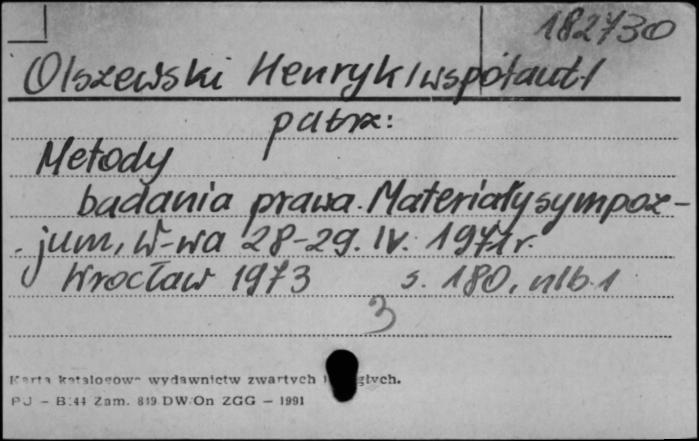 182730
Olszewski Henryk/współaut/
patrz:
Metody
badania prawa. Materiały sympoz-
jum, W-wa 28-29. IV. 1971r.
Wrocław 1973 s. 180, nlb. 1
3
Karta katalogowa wydawnictw zwartych i głych.
PU - B.44 Zam. 819 DW/On ZGG - 1991